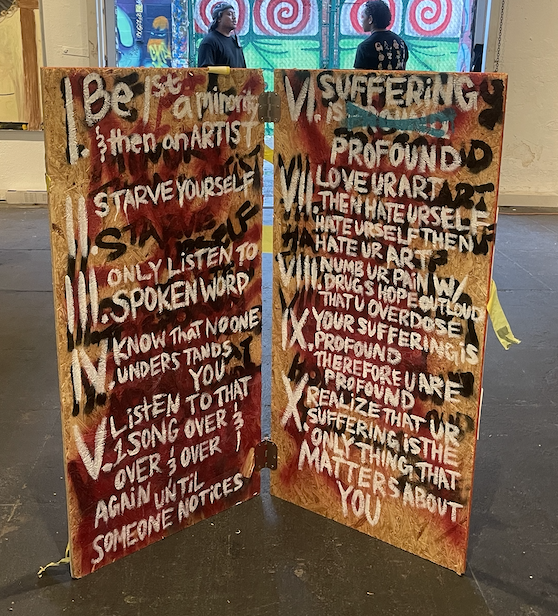 I. Be 1st a minority
& then an ARTIST
II. STARVE YOURSELF
III. ONLY LISTEN TO
SPOKEN WORD
IV. KNOW THAT NO ONE
UNDERSTANDS
YOU
V. LISTEN TO THAT
1 SONG OVER &
OVER & OVER
AGAIN UNTIL
SOMEONE NOTICES
VI. SUFFERING
IS
PROFOUND
VII. LOVE UR ART
THEN HATE URSELF
HATE URSELF THEN
HATE UR ART
VIII. NUMB UR PAIN W/
DRUGS HOPE OUTLOUD
THAT U OVERDOSE
IX. YOUR SUFFERING IS
PROFOUND
THEREFORE U ARE
PROFOUND
X. REALIZE THAT UR
SUFFERING IS THE
ONLY THING THAT
MATTERS ABOUT
YOU